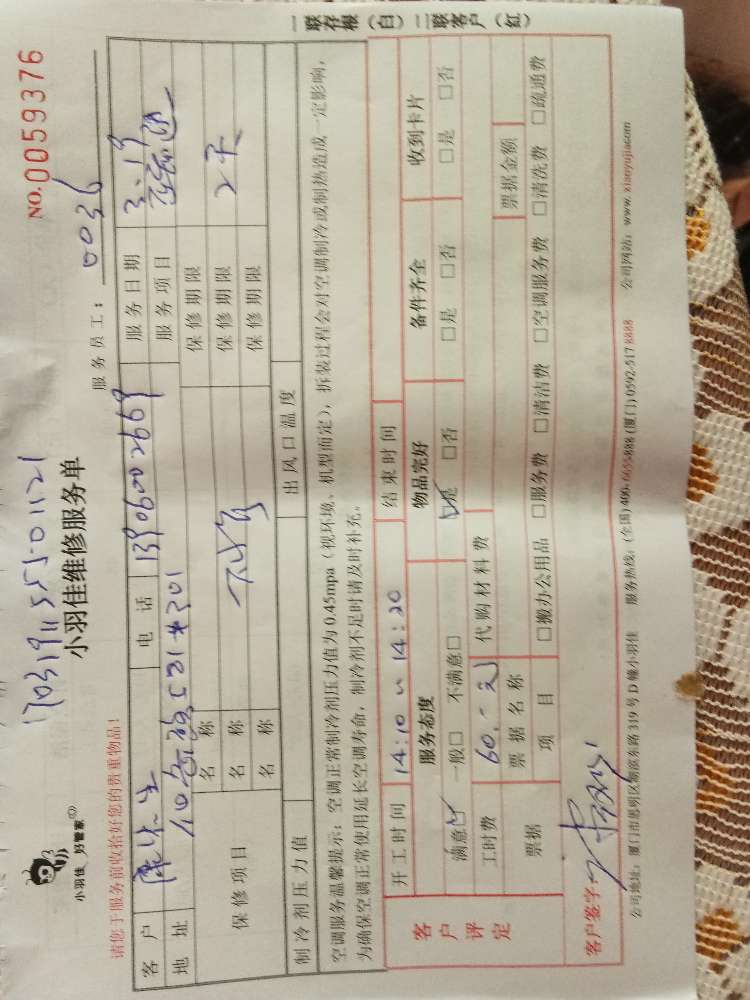 1703191155501121
NO.0059376
小羽佳 好管家
小羽佳维修服务单
服务员工: 0036
请您于服务前收拾好您的贵重物品!
客户 先生 电话 13906002669 服务日期 3.19
地址 服务项目
保修项目 名称 保修期限
名称 保修期限 2天
名称 保修期限
制冷剂压力值 出风口温度
空调服务温馨提示: 空调正常制冷剂压力值为0.45mpa(视环境、机型而定), 拆装过程会对空调制冷或制热造成一定影响,
为确保空调正常使用延长空调寿命, 制冷剂不足时请及时补充。
客户评定
开工时间 14:10~14:20 结束时间
服务态度 物品完好 备件齐全 收到卡片
满意☑ 一般□ 不满意□ ☑是 □否 □是 □否 □是 □否
工时费 60.-元 代购材料费
票据 票据名称 票据金额
项目 □搬办公用品 □服务费 □清洁费 □空调服务费 □清洗费 □疏通费
客户签字:
公司地址: 厦门市思明区湖滨东路319号D幢小羽佳 服务热线: (全国)400-6655888 (厦门)0592-5178888 公司网站: www.xianyujiacom
一联存根(白)二联客户(红)